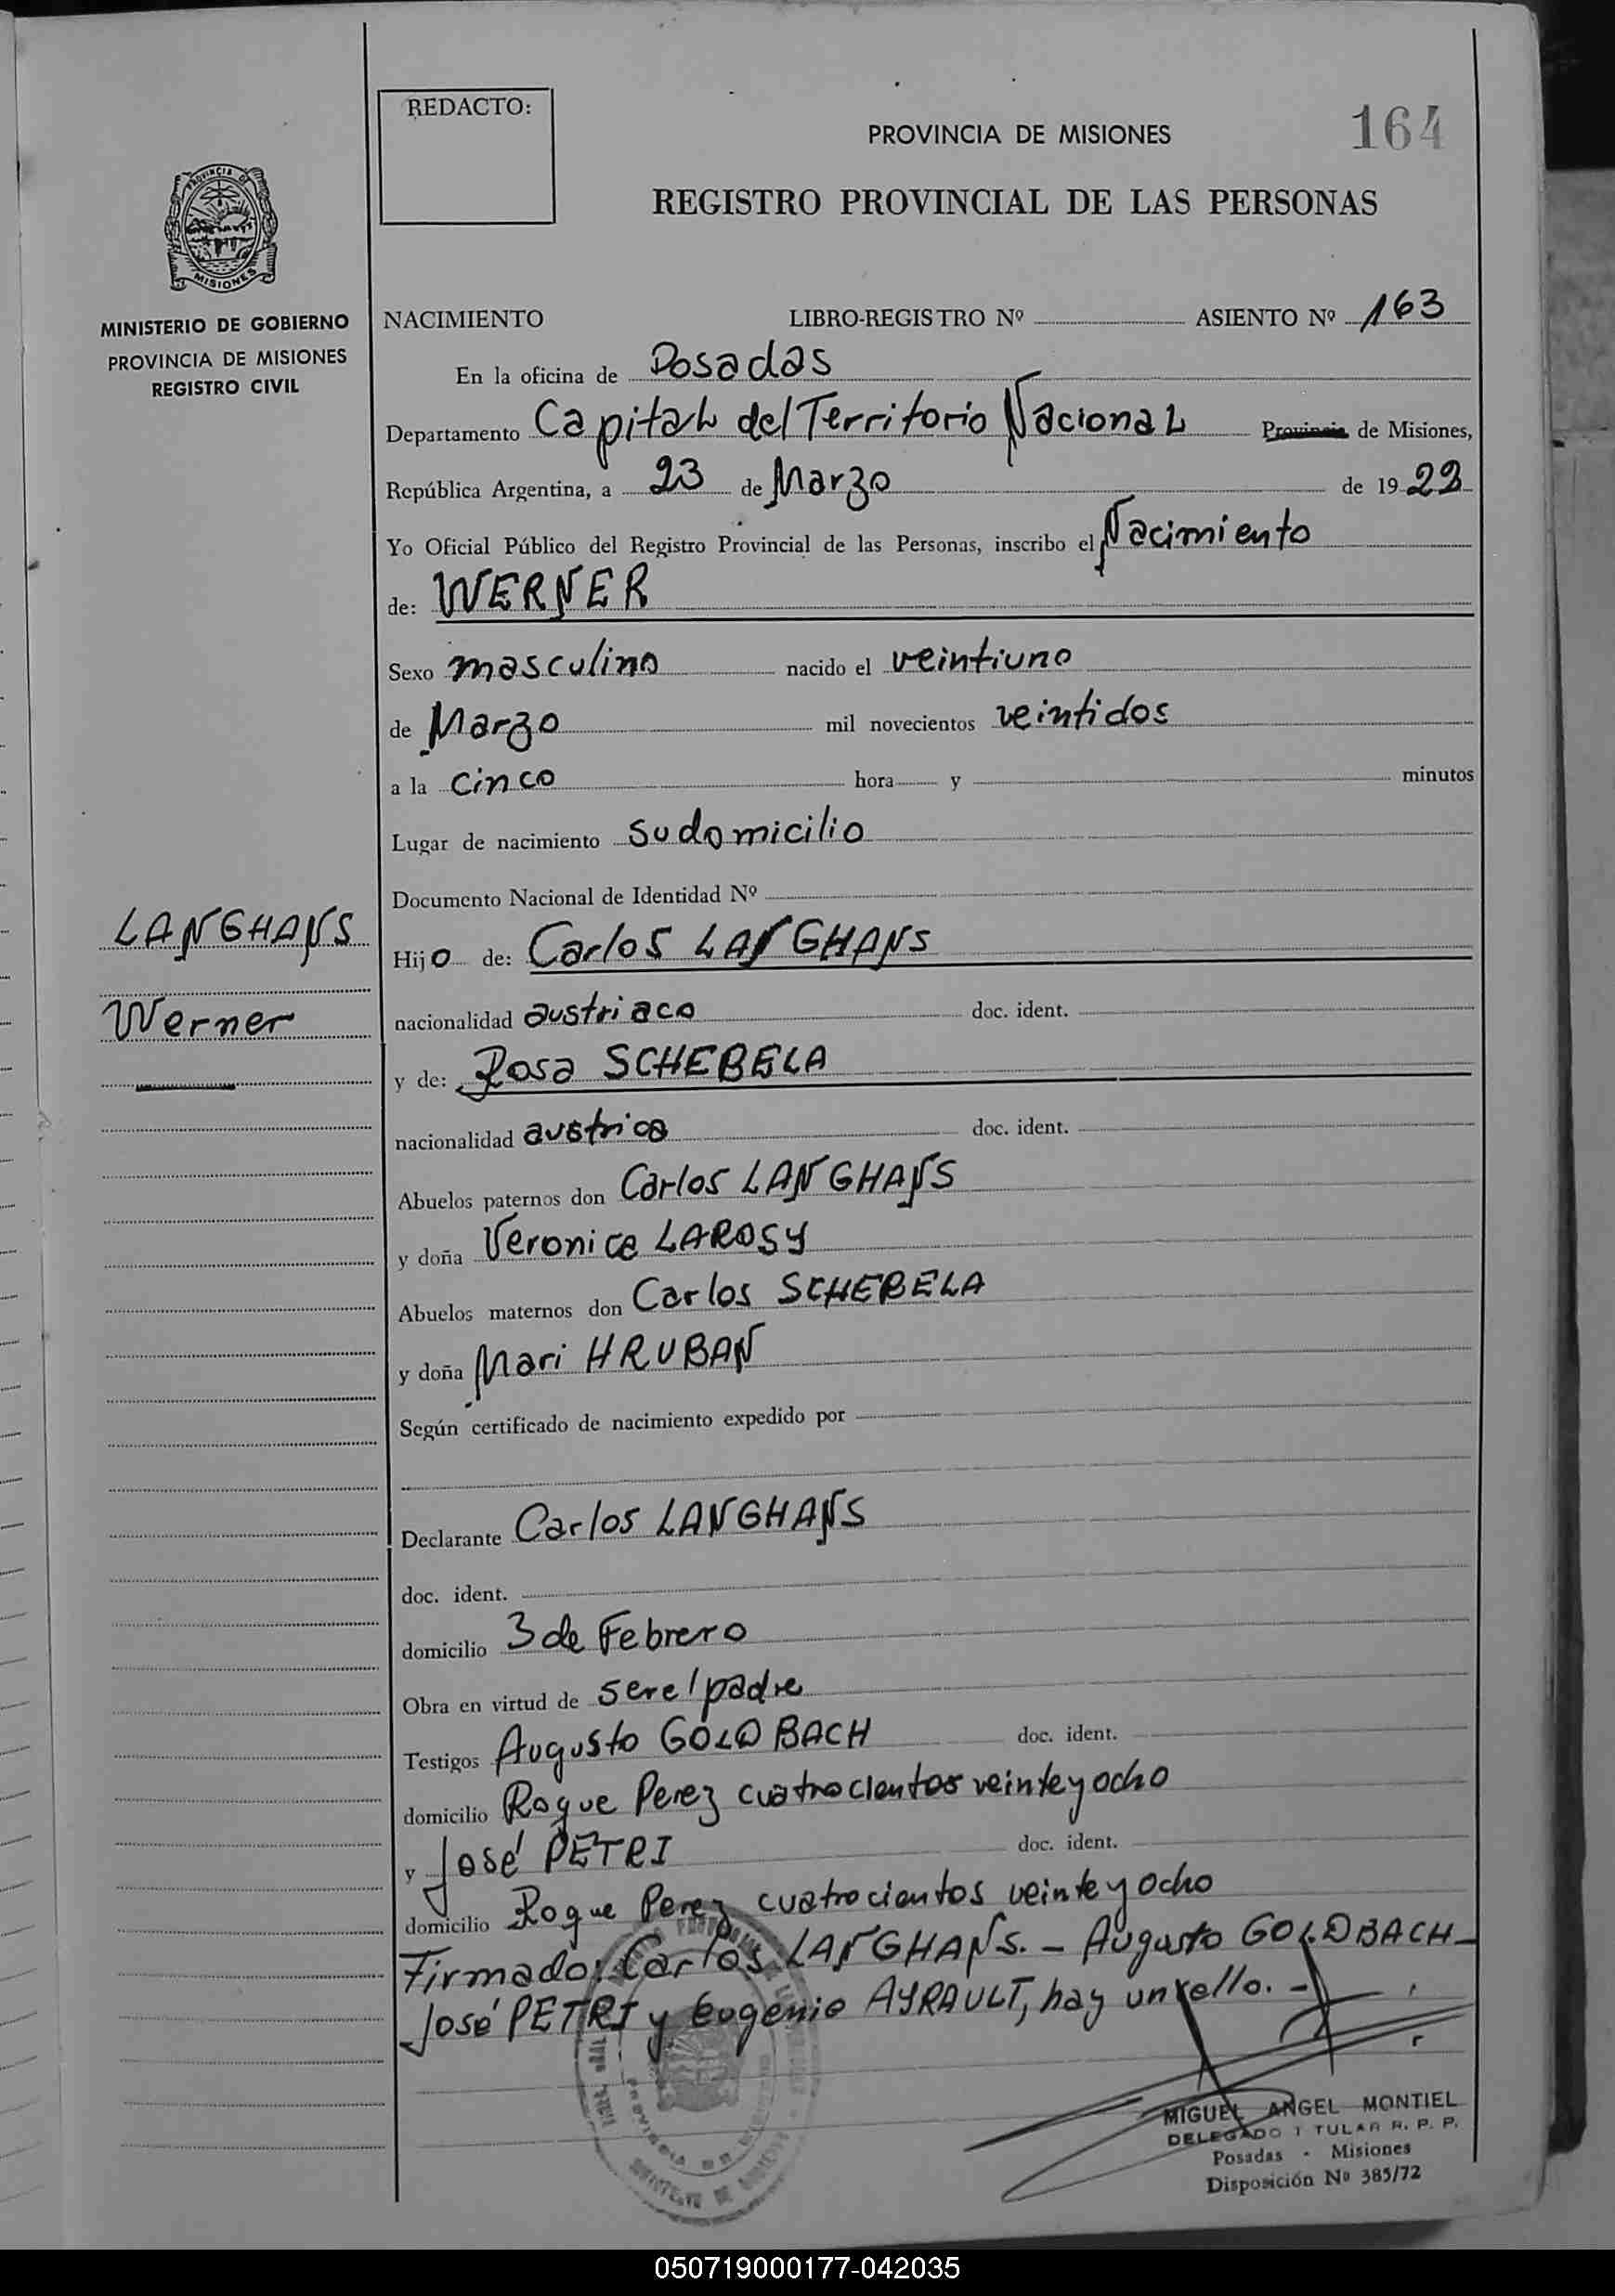 REDACTO:
PROVINCIA DE MISIONES
164
REGISTRO PROVINCIAL DE LAS PERSONAS
PROVINCIA DE
MISIONES
MINISTERIO DE GOBIERNO
PROVINCIA DE MISIONES
REGISTRO CIVIL
NACIMIENTO LIBRO-REGISTRO Nº ASIENTO Nº 163
En la oficina de Posadas
Departamento Capital del Territorio Nacional Provincia de Misiones,
República Argentina, a 23 de Marzo de 1922
Yo Oficial Público del Registro Provincial de las Personas, inscribo el Nacimiento
de: WERNER
Sexo masculino nacido el veintiuno
de Marzo mil novecientos veintidos
a la cinco hora y minutos
Lugar de nacimiento su domicilio
Documento Nacional de Identidad Nº
LANGHANS
Werner
Hijo de: Carlos LANGHANS
nacionalidad austriaco doc. ident.
y de: Rosa SCHEBELA
nacionalidad austrica doc. ident.
Abuelos paternos don Carlos LANGHANS
y doña Veronica LAROSY
Abuelos maternos don Carlos SCHEBELA
y doña Mari HRUBAN
Según certificado de nacimiento expedido por
Declarante Carlos LANGHANS
doc. ident.
domicilio 3 de Febrero
Obra en virtud de ser el padre
Testigos Augusto GOLDBACH doc. ident.
domicilio Roque Perez cuatrocientos veinte y ocho
y José PETRI doc. ident.
domicilio Roque Perez cuatrocientos veinte y ocho
Firmado: Carlos LANGHANS. - Augusto GOLDBACH -
José PETRI y Eugenio AYRAULT, hay un sello. -
MIGUEL ANGEL MONTIEL
DELEGADO TITULAR R. P. P.
Posadas - Misiones
Disposición Nº 385/72
050719000177-042035